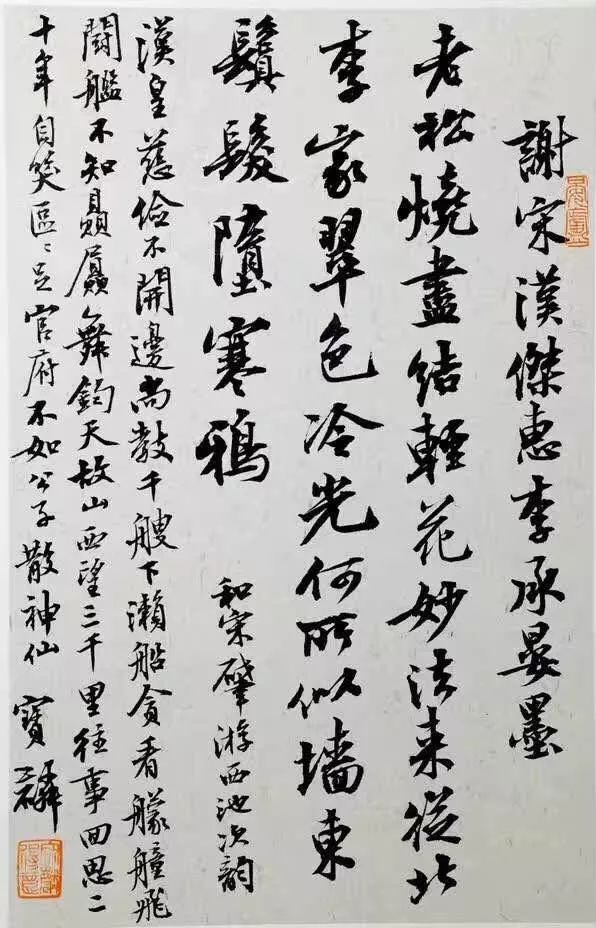 謝宋漢傑惠李承晏墨
老松燒盡結輕花妙法來從北
李家翠色冷光何所似墻東
鬒髮墮寒鴉
和宋肇游西池次韻
漢皇慈儉不開邊尚教千艘下瀨船貪看艨艟飛
鬪艦不知贔屭舞鈞天故山西望三千里往事回思二
十年自笑區〻足官府不如公子散神仙 寶